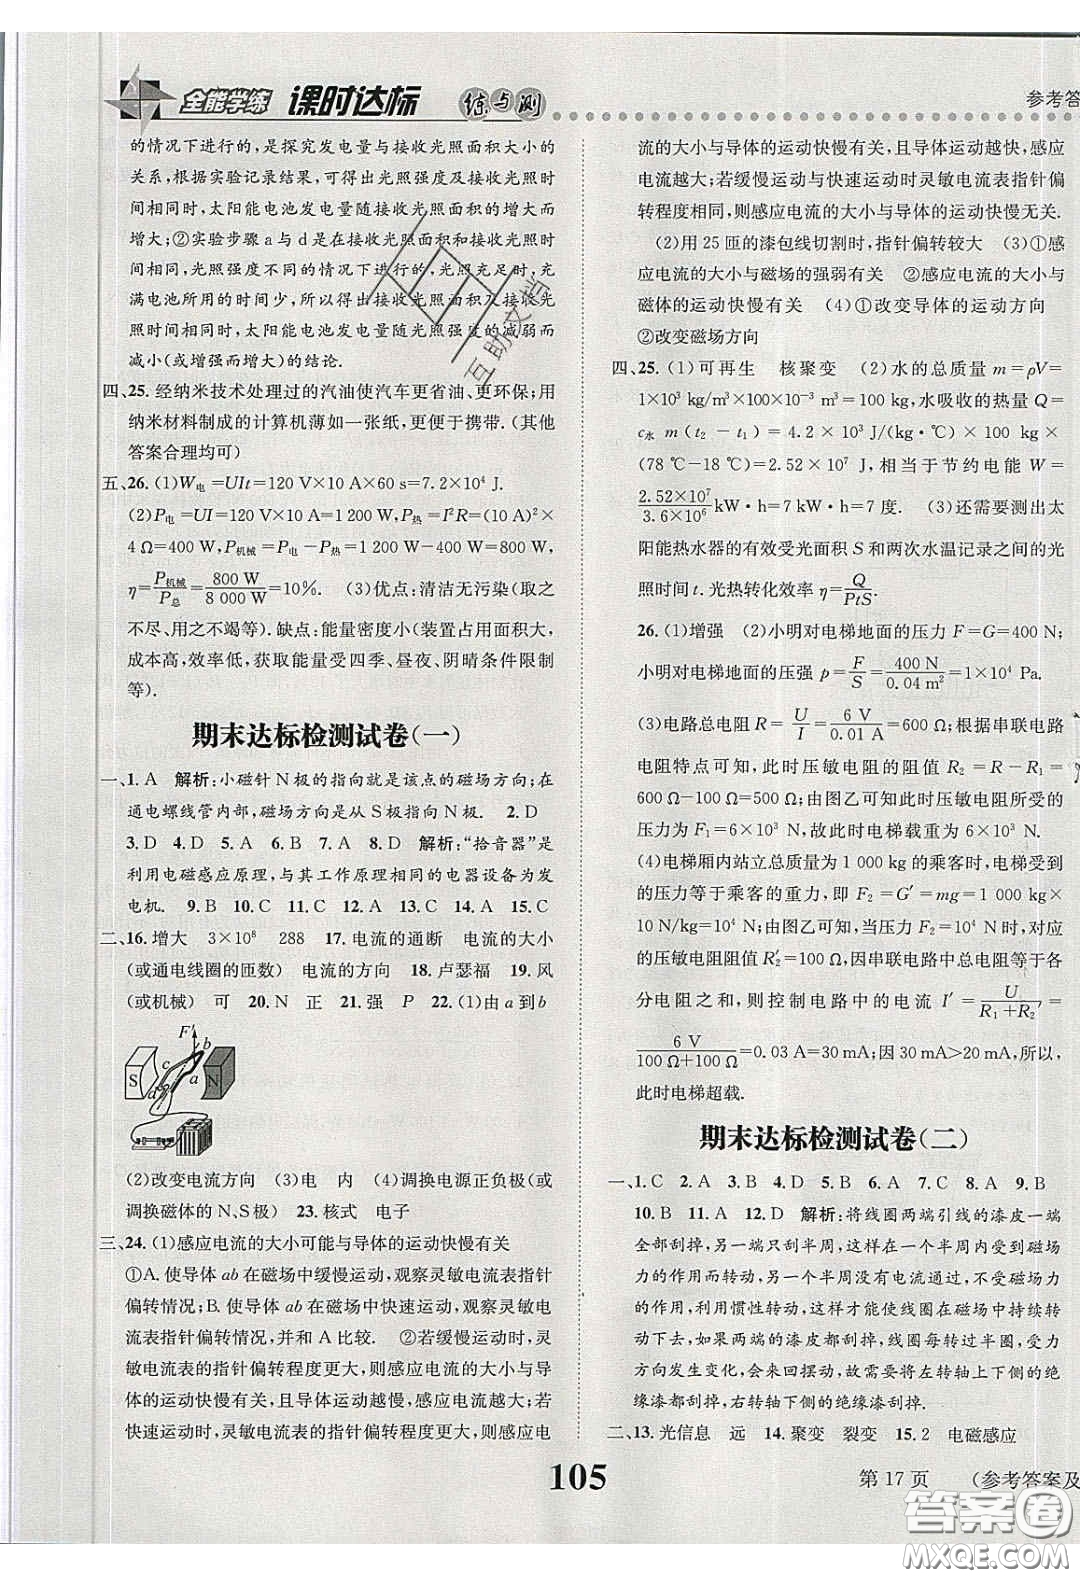 全能学练 课时达标 练与测
参考答
的情况下进行的,是探究发电量与接收光照面积大小的
关系,根据实验记录结果,可得出光照强度及接收光照时
间相同时,太阳能电池发电量随接收光照面积的增大而
增大;②实验步骤a与d是在接收光照面积相同而接收
时,光照强度不同的情况下进行的,光照充足时,充
满电池所用的时间少,所以,可得出光照面积及接收光
照时间相同时,太阳能电池发电量随光照强度的减弱而
减小(或增强而增大)的结论.
四、25. 经纳米技术处理过的汽油使汽车更省油、更环保;用
纳米材料制成的计算机薄如一张纸,更便于携带.(其他
答案合理均可)
五、26. (1)W电=UIt=120 V×10 A×60 s=7.2×10⁴ J.
(2)P电=UI=120 V×10 A=1 200 W,P热=I²R=(10 A)²×
4 Ω=400 W,P机械=P电-P热=1 200 W-400 W=800 W,
η=P机械/P总=800 W/8 000 W=10%. (3)优点:清洁无污染(取之
不尽、用之不竭等).缺点:能量密度小(装置占用面积大,
成本高,效率低,获取能量受四季、昼夜、阴晴条件限制
等).
期末达标检测试卷(一)
一、1. A 解析:小磁针N极的指向就是该点的磁场方向;在
通电螺线管内部,磁场方向是从S极指向N极. 2. D
3. D 4. D 5. D 6. A 7. A 8. D 解析:“拾音器”是
利用电磁感应原理,与其工作原理相同的电器设备为发
电机. 9. B 10. C 11. C 12. A 13. A 14. A 15. C
二、16. 增大 3×10⁸ 288 17. 电流的通断 电流的大小
(或通电线圈的匝数) 电流的方向 18. 卢瑟福 19. 风
(或机械) 可 20. N 正 21. 强 P 22. (1)由a到b
F
b
c
S
a
N
d
a
(2)改变电流方向 (3)电 内 (4)调换电源正负极(或
调换磁体的N、S极) 23. 核式 电子
三、24. (1)感应电流的大小可能与导体的运动快慢有关
①A. 使导体ab在磁场中缓慢运动,观察灵敏电流表指针
偏转情况;B. 使导体ab在磁场中快速运动,观察灵敏电
流表指针偏转情况,并和A比较. ②若缓慢运动时,灵
敏电流表的指针偏转程度更大,则感应电流的大小与导
体的运动快慢有关,且导体运动越慢,感应电流越大;若
快速运动时,灵敏电流表的指针偏转程度更大,则感应电
流的大小与导体的运动快慢有关,且导体运动越快,感应
电流越大;若缓慢运动与快速运动时灵敏电流表指针偏
转程度相同,则感应电流的大小与导体的运动快慢无关.
(2)用25匝的漆包线切割时,指针偏转较大 (3)①感
应电流的大小与磁场的强弱有关 ②感应电流的大小与
磁体的运动快慢有关 (4)①改变导体的运动方向
②改变磁场方向
四、25. (1)可再生 核聚变 (2)水的总质量m=ρV=
1×10³ kg/m³×100×10⁻³ m³=100 kg,水吸收的热量Q=
c水 m(t₂-t₁)=4.2×10³ J/(kg·℃)×100 kg×
(78 ℃-18 ℃)=2.52×10⁷ J,相当于节约电能W=
2.52×10⁷/3.6×10⁶ kW·h=7 kW·h=7度. (3)还需要测出太
阳能热水器的有效受光面积S和两次水温记录之间的光
照时间t.光热转化效率η=Q/PtS.
26. (1)增强 (2)小明对电梯地面的压力F=G=400 N;
小明对电梯地面的压强p=F/S=400 N/0.04 m²=1×10⁴ Pa.
(3)电路总电阻R=U/I=6 V/0.01 A=600 Ω;根据串联电路
电阻特点可知,此时压敏电阻的阻值R₂=R-R₁=
600 Ω-100 Ω=500 Ω;由图乙可知此时压敏电阻所受的
压力为F₁=6×10³ N,故此时电梯载重为6×10³ N.
(4)电梯厢内站立总质量为1 000 kg的乘客时,电梯受到
的压力等于乘客的重力,即F₂=G′=mg=1 000 kg×
10 N/kg=10⁴ N;由图乙可知,当压力F₂=10⁴ N时,对应
的压敏电阻阻值R₂′=100 Ω,因串联电路中总电阻等于各
分电阻之和,则控制电路中的电流I′=U/R₁+R₂′=
6 V/100 Ω+100 Ω=0.03 A=30 mA;因30 mA>20 mA,所以,
此时电梯超载.
期末达标检测试卷(二)
一、1. C 2. A 3. B 4. D 5. B 6. A 7. C 8. A 9. B
10. B 11. A 12. D 解析:将线圈两端引线的漆皮一端
全部刮掉,另一端只刮半周,这样在一个半周内受到磁场
力的作用而转动,另一个半周没有电流通过,不受磁场力
的作用,利用惯性转动,这样才能使线圈在磁场中持续转
动下去.如果两端的漆皮都刮掉,线圈每转过半圈,受力
方向发生变化,会来回摆动,故要将左转轴上下侧的绝
缘漆都刮掉,右转轴下侧的绝缘漆刮掉.
二、13. 光信息 远 14. 聚变 裂变 15. 2 电磁感应
105
第17页
(参考答案及
互助文档
答案圈
MXQE.COM